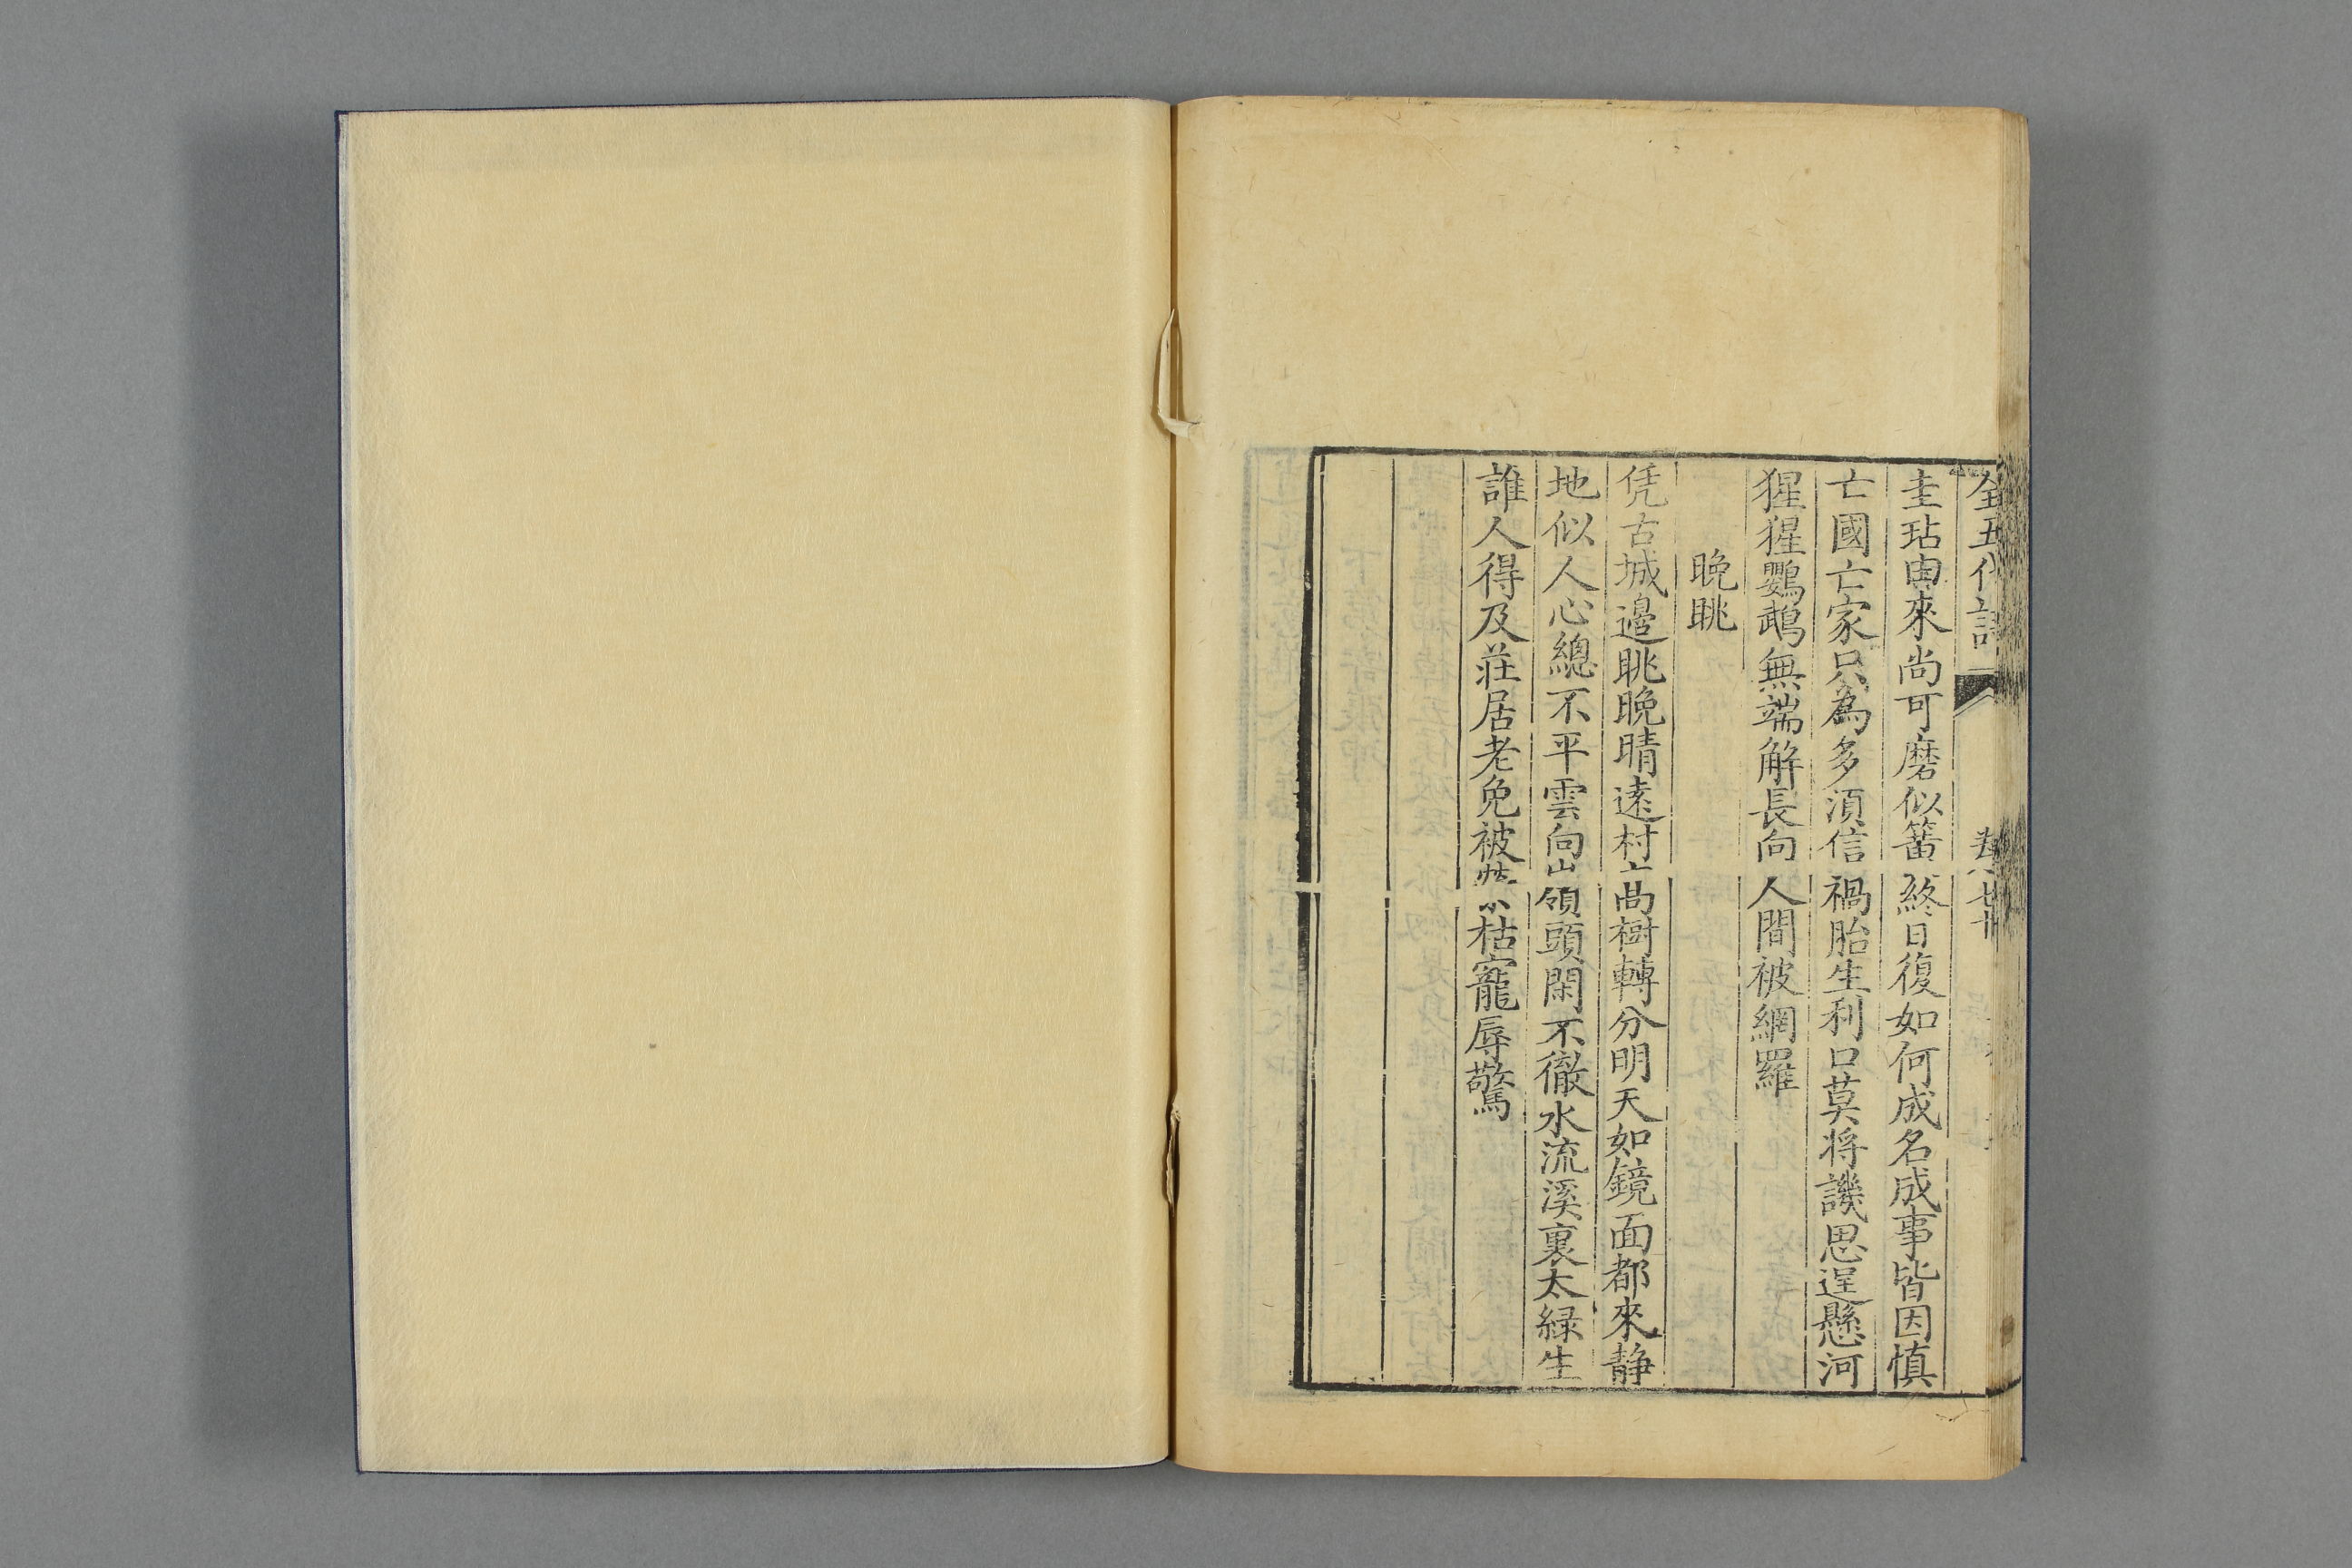 全五代詩
圭玷由來尚可磨似簧終日復如何成名成事皆因慎
亡國亡家只為多須信禍胎生利口莫將譏思逞懸河
猩猩鸚鵡無端解長向人間被網羅
晚眺
凭古城邉眺晚晴遠村高樹轉分明天如鏡面都來静
地似人心總不平雲向嶺頭閑不徹水流溪裏太緑生
誰人得及莊居老免被榮枯寵辱驚